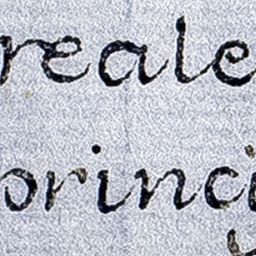 reale
princi